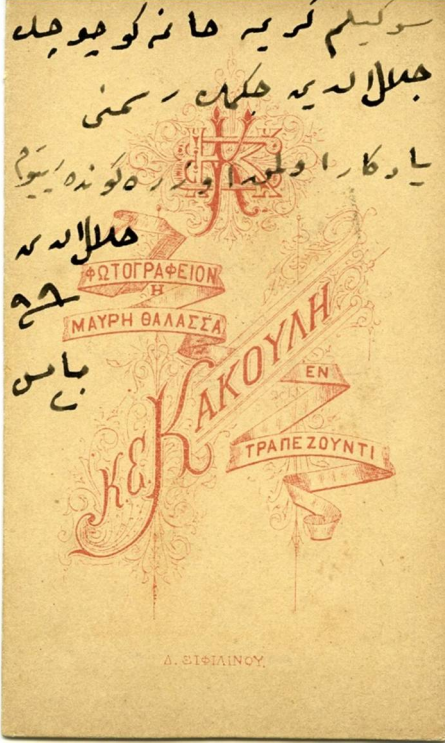 سوكيلم كريمه خانمه كوچوجك
جلال الدين جكمك رسمنى
يادكار اولمق اوزره كوندرييورم
جلال الدين
مايس
ΦΩΤΟΓΡΑΦΕΙΟΝ
Η
ΜΑΥΡΗ ΘΑΛΑΣΣΑ
Κ.Ε. ΚΑΚΟΥΛΗ
ΕΝ
ΤΡΑΠΕΖΟΥΝΤΙ
Δ. ΞΙΦΙΛΙΝΟΥ